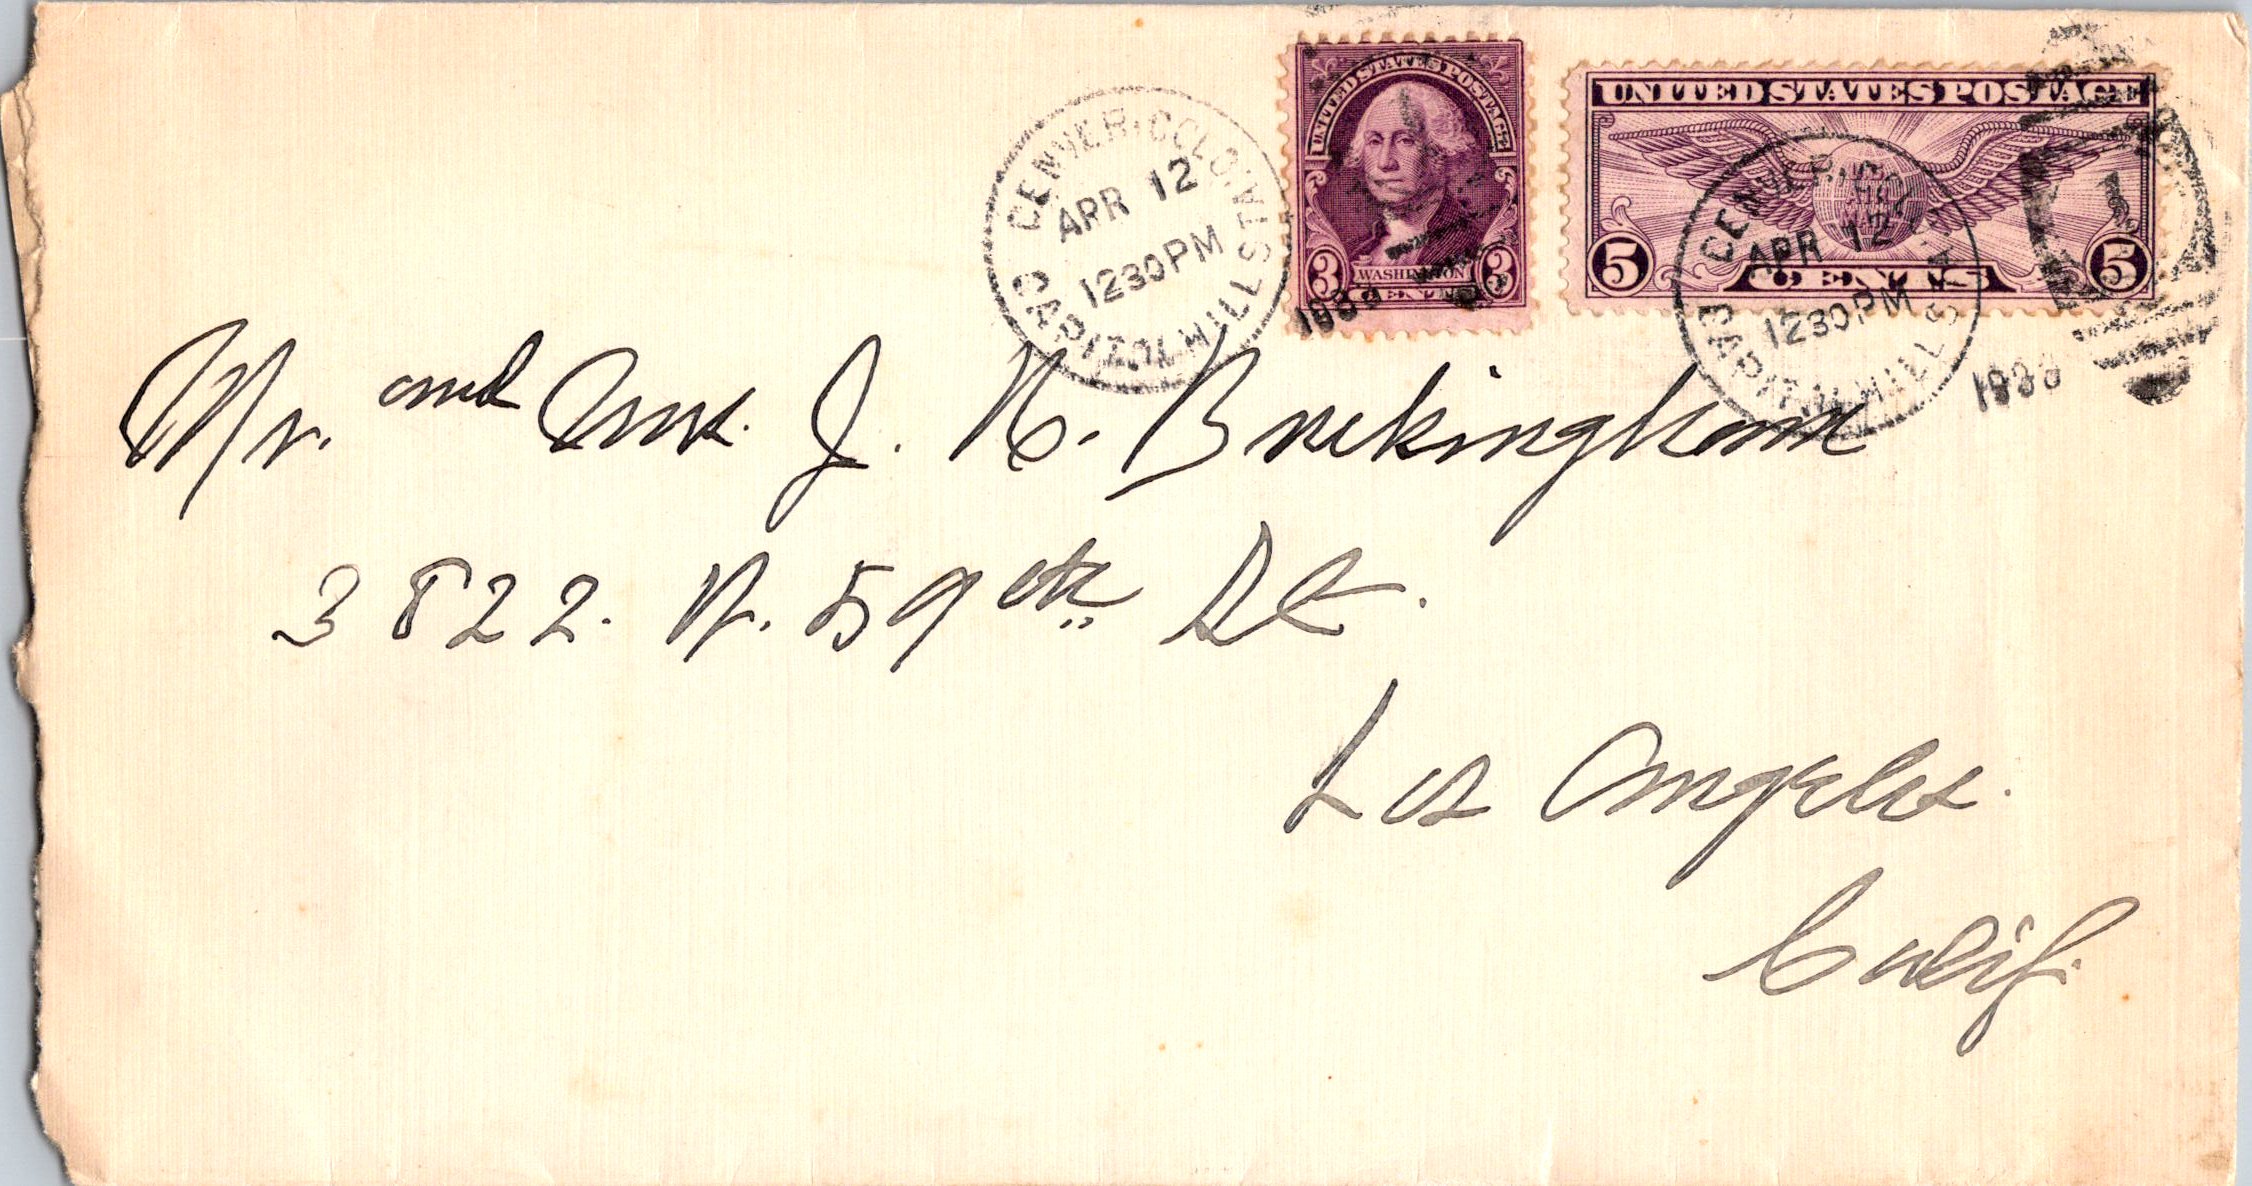 DENVER, COLO.
CAPITOL HILL STA.
APR 12
1230 PM
1933
UNITED STATES POSTAGE
3 WASHINGTON 3
CENTS
UNITED STATES POSTAGE
5 CENTS 5
DENVER, COLO.
CAPITOL HILL STA.
APR 12
1230 PM
1933
1
Mr. and Mrs. J. N. Buckingham
3822. N. 59th St.
Los Angeles.
Calif.